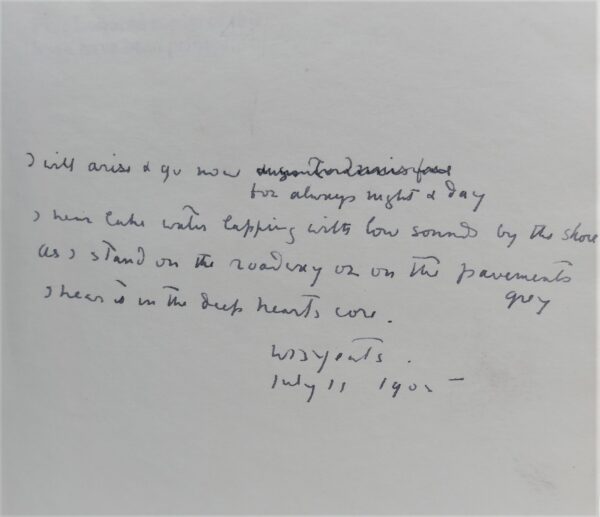 I will arise & go now
for always night & day
I hear lake water lapping with low sounds by the shore
as I stand on the roadway or on the pavements
grey
I hear it in the deep hearts core.
WB Yeats.
July 11